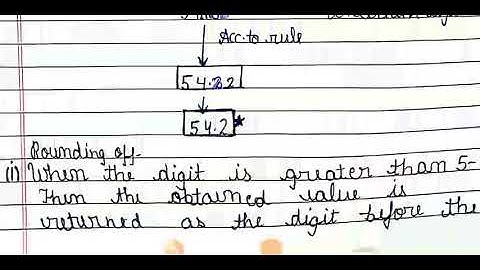 Acc. to rule
54.22
54.2*
Rounding off-
(i) When the digit is greater than 5-
Then the obtained value is
returned as the digit before the